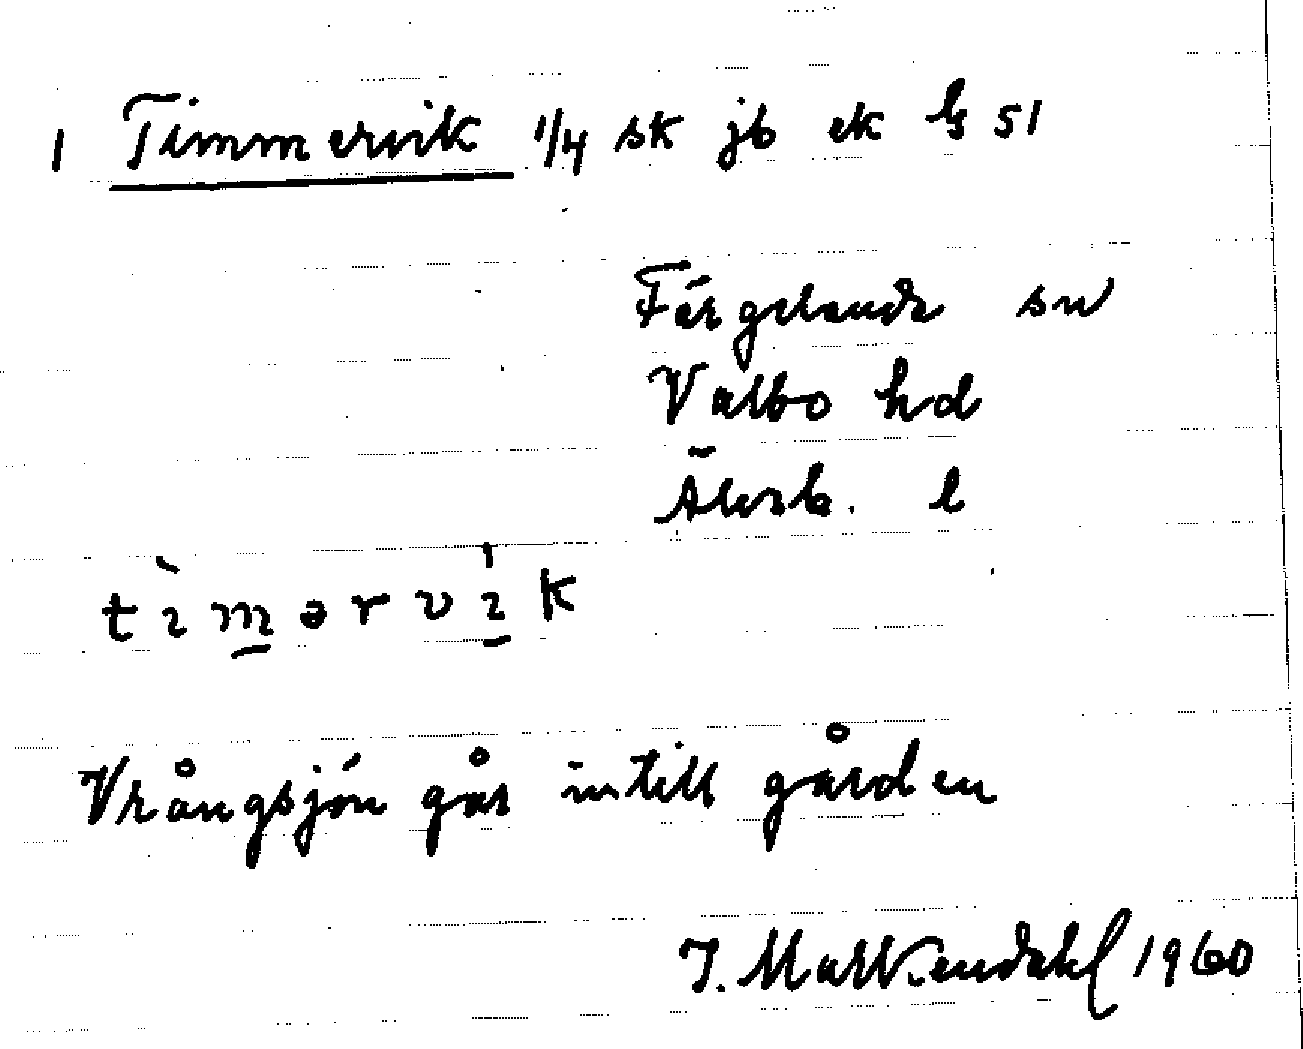 1 Timmervik 1/4 sk jb ek G 51
Färgelanda sn
Valbo hd
Älvsb. l
tìmərvík
Vrångsjön går intill gården
J. Mallkendahl 1960